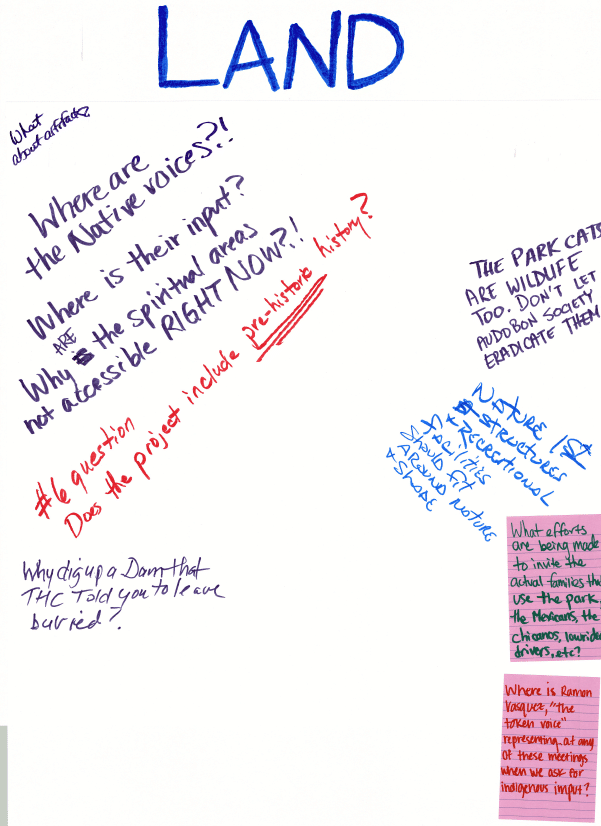 LAND
What
about artifacts?
Where are
the Native voices?!
Where is their input?
Why ARE the spiritual areas
not accessible RIGHT NOW?!
#6 question
Does the project include pre-historic history?
Why dig up a Dam that
THC Told you to leave
burried?
THE PARK CATS
ARE WILDLIFE
TOO. DON'T LET
AUDOBON SOCIETY
ERADICATE THEM
NATURE 1st
STRUCTURES
+ RECREATIONAL
FACILITIES
Should fit
AROUND NATURE
+ SHADE
What efforts
are being made
to invite the
actual families tha
use the park,
the Mexicans, the
chicanos, lowride
drivers, etc?
Where is Ramon
Vasquez, "the
token voice"
representing at any
of these meetings
when we ask for
indigenous input?